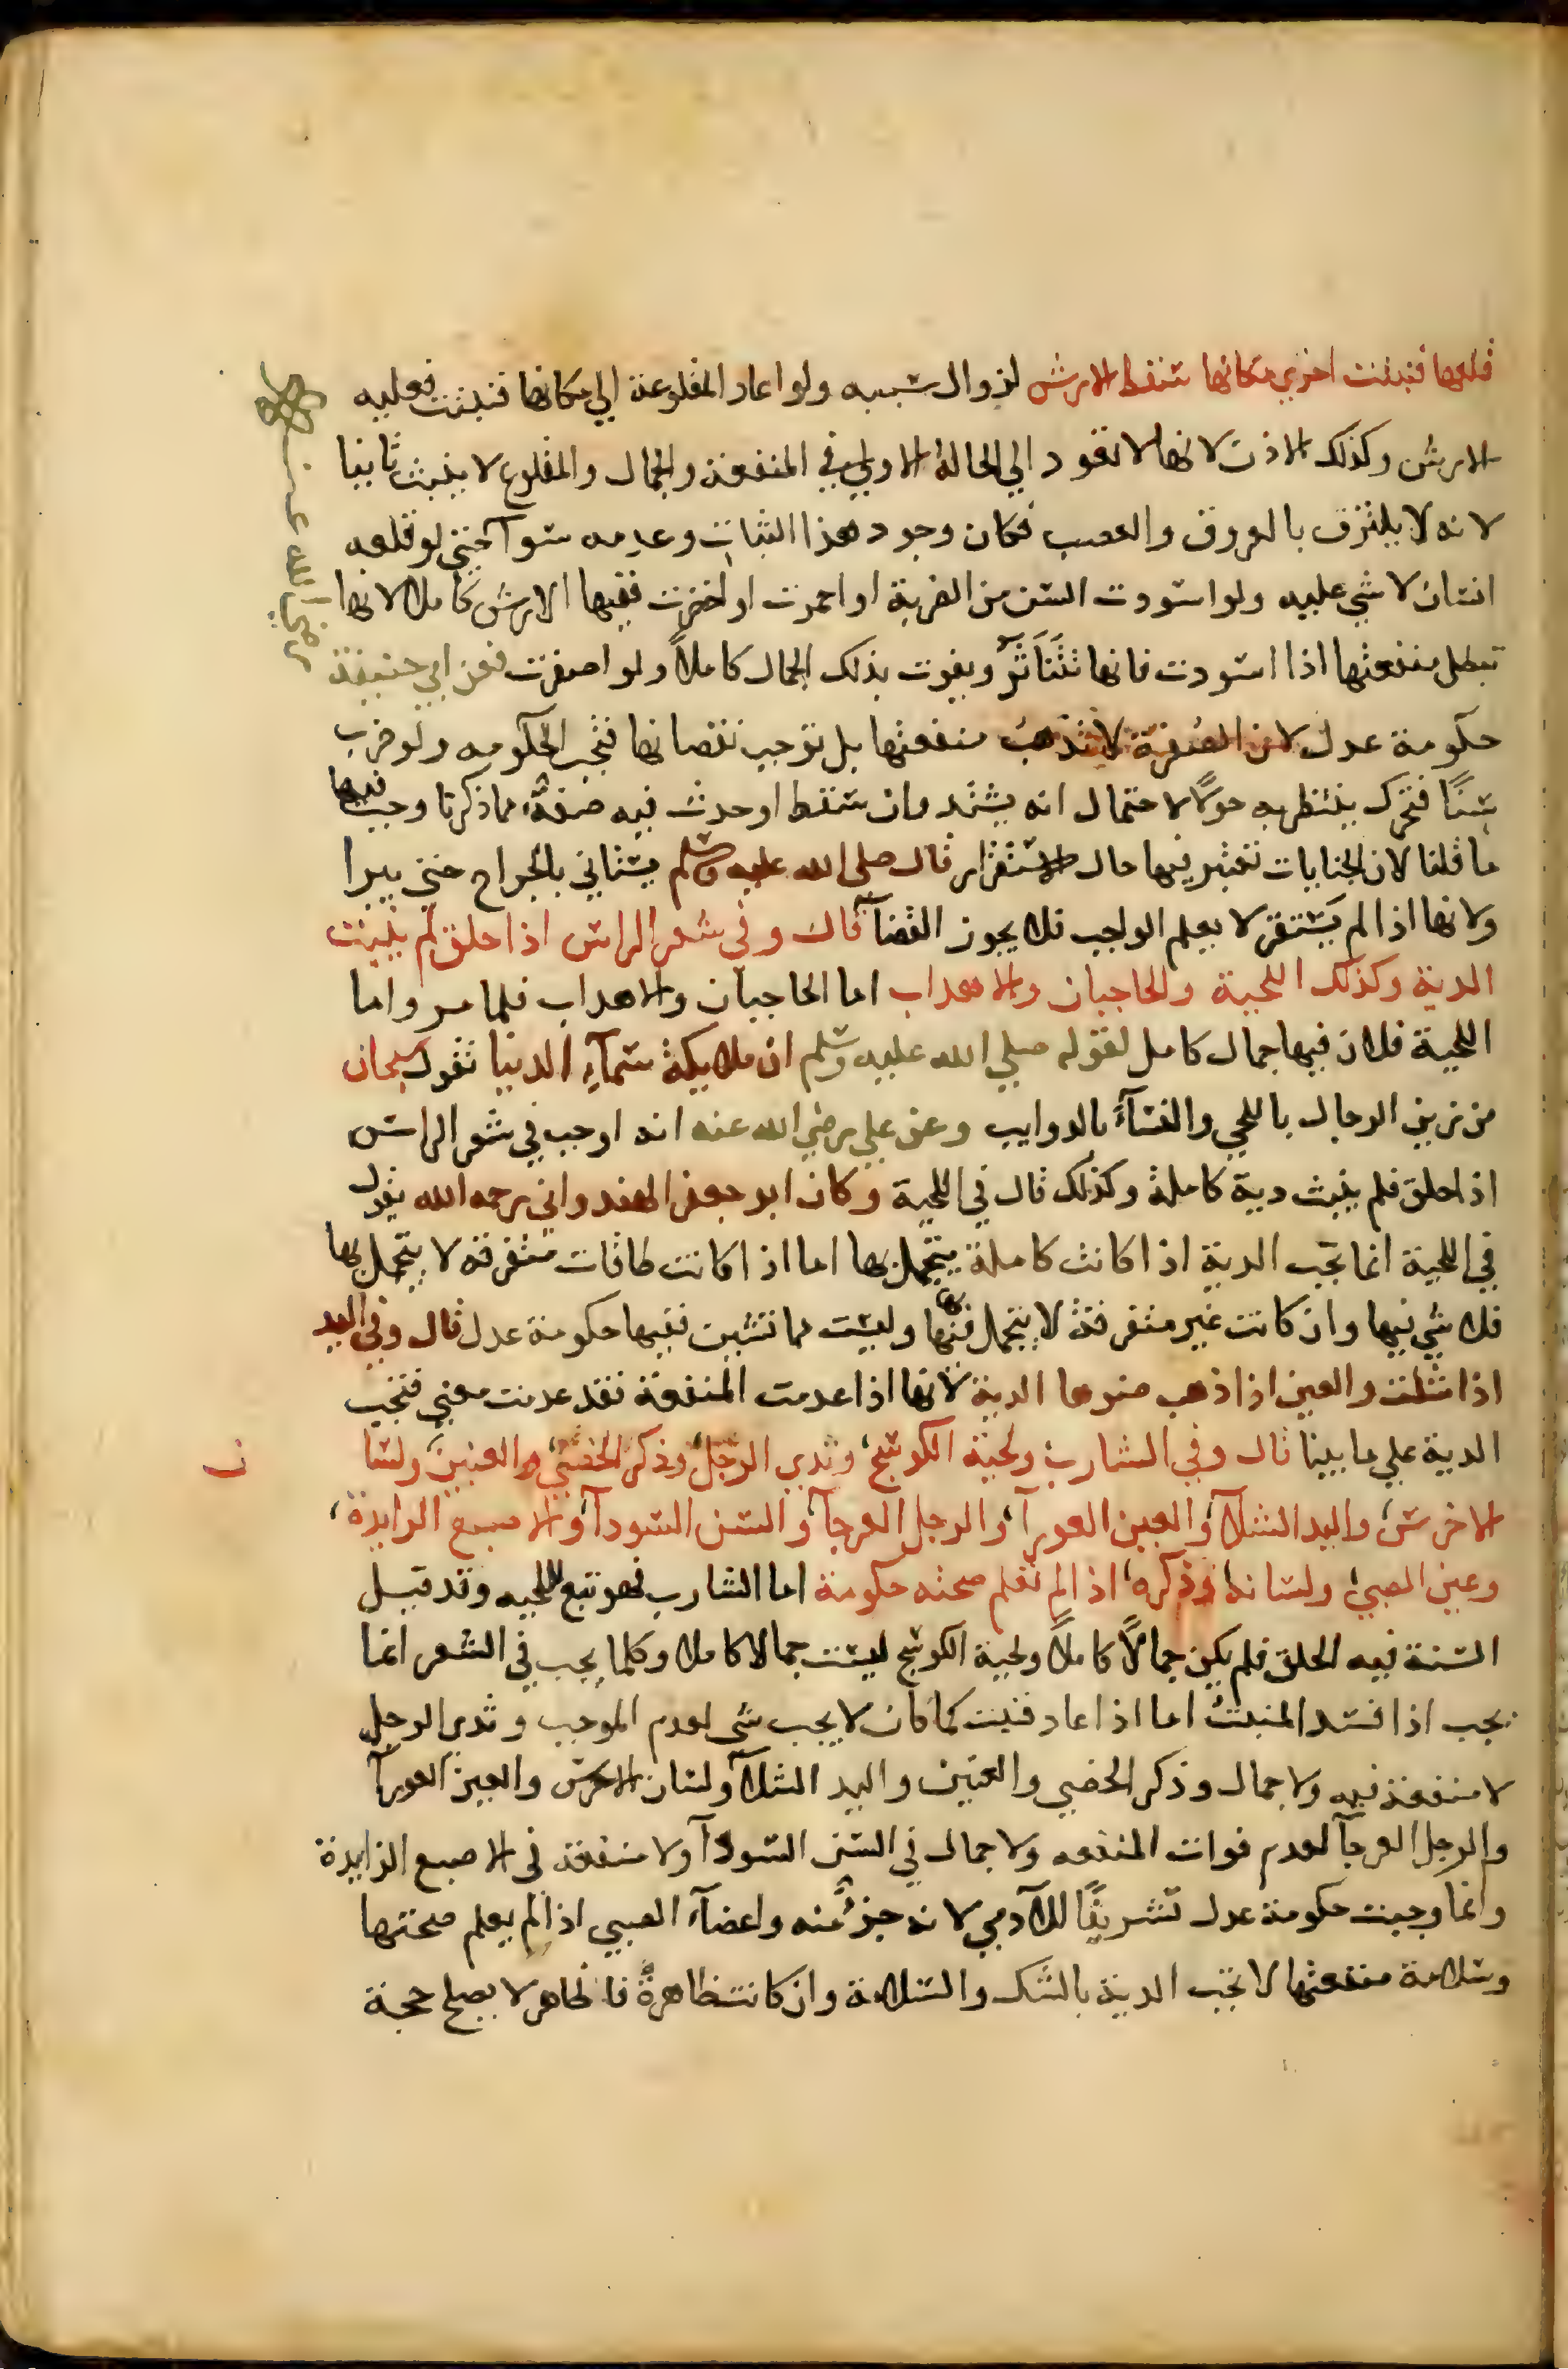 قلعها فنبتت اخري مكانها سقط الارش لزوال سببه ولو اعاد المقلوعة الي مكانها فنبتت فعليه
الارش وكذلك الاذن لانها لا تعود الي الحالة الاولي في المنفعة والجمال والمقلوع لا ينبت ثانيا
لانه لا يلتزق بالعروق والعصب فكان وجود هذا النبات وعدمه سوآ حتي لو قلعه
انسان لا شي عليه ولو اسودت السن من الضربة او احمرت او اخضرت ففيها الارش كاملا لانها
تبطل منفعتها اذا اسودت فانها تتناثر ويفوت بذلك الجمال كاملاً ولو اصفرت فعن ابي حنيفة
حكومة عدل لان الصفرة لا تذهب منفعتها بل توجب نقصانها فتجب الحكومه ولو ضرب
سنًا فتحرك ينتظر به حولًا لاحتمال انه يشتد وان سقط او حدث فيه صفة مما ذكرنا وجب فيها
ما قلنا لان الجنايات تعتبر فيها حال الاستقرار قال صلى الله عليه وسلم يستاني بالجراح حتي يبرا
ولانها اذا لم يستقر لا يعلم الواجب فلا يجوز القضآ قال وفي شعر الراس اذا حلق لم ينبت
الدية وكذلك اللحية والحاجبان والاهداب اما الحاجبان والاهداب فلما مر واما
اللحية فلان فيها جمال كامل لقوله صلي الله عليه وسلم ان ملايكة سمآء الدنيا تقول سبحان
من زين الرجال باللحي والنسآء بالدوايب وعن علي رضي الله عنه انه اوجب في شعر الراس
اذا حلق فلم ينبت دية كاملة وكذلك قال في اللحية وكان ابو جعفر الهندواني رحمه الله يقول
في اللحية انما تجب الدية اذا كانت كاملة يتجمل بها اما اذا كانت طاقات متفرقة لا يتجمل بها
فلا شي فيها وان كانت غير متفرقة لا يتجمل بها وليست مما تشين ففيها حكومة عدل قال وفي اليد
اذا شلت والعين اذا ذهب ضوها الدية لانها اذا عدمت المنفعة فقد عدمت معني فتجب
الدية علي ما بينا قال وفي الشارب ولحية الكوسج وثدي الرجل وذكر الخصي والعنين ولسا
ن
الاخرس واليد الشلآ والعين العورآ والرجل العرجآ والسن السودآ والاصبع الزايدة
وعين الصبي ولسانه وذكره اذا لم تعلم صحته حكومة اما الشارب فهو تبع للحيه وقد قيل
السنة فيه الحلق فلم يكن جمالًا كاملاً ولحية الكوسج ليست جمالا كاملا وكلما يجب في الشعر انما
يجب اذا فسد المنبت اما اذا عاد فنبت كما كان لا يجب شي لعدم الموجب وثدي الرجل
لا منفعة فيه ولا جمال وذكر الخصي والعنين واليد الشلآ ولسان الاخرس والعين العورآ
والرجل العرجآ لعدم فوات المنفعه ولا جمال في السن السودآ ولا منفعة في الاصبع الزايدة
وانما وجبت حكومة عدل تشريفًا للآدمي لانه جزؤ منه واعضآء الصبي اذا لم يعلم صحتها
وسلامة منفعتها لا تجب الدية بالشك والسلامة وان كانت ظاهرة فالظاهر لا يصلح حجة
رضي الله عنه